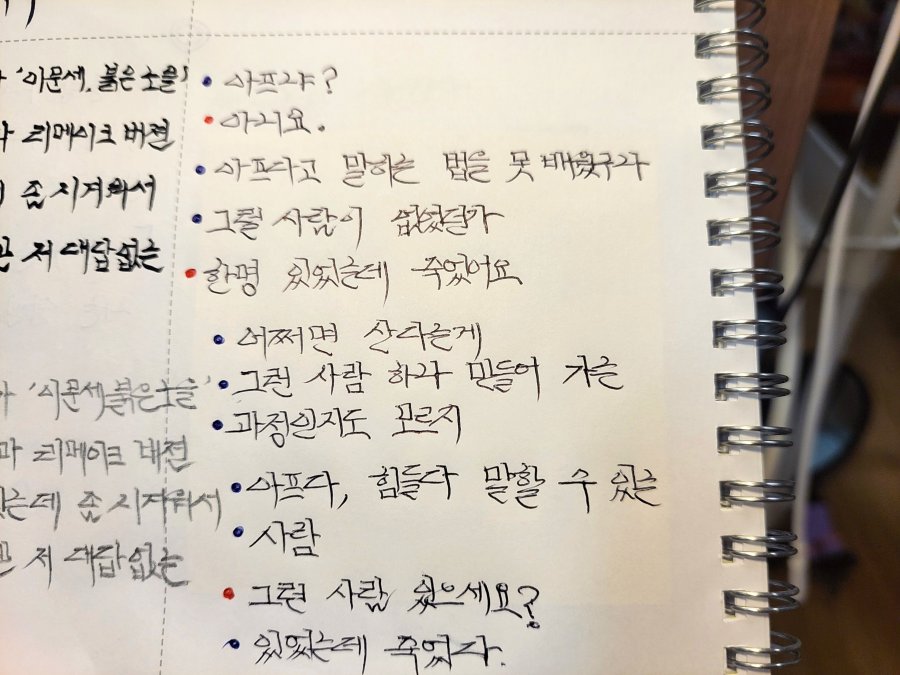 '이문세, 붉은 노을'
리메이크 버전
좀 지겨워서
저 대답없는
'이문세, 붉은 노을'
리메이크 버전
는데 좀 지겨워서
저 대답없는
• 아프냐?
• 아니요.
• 아프다고 말하는 법을 못 배웠구나
• 그럴 사람이 없었던가
• 한명 있었는데 죽었어요
• 어쩌면 산다는게
• 그런 사람 하나 만들어 가는
• 과정인지도 모르지
• 아프다, 힘들다 말할 수 있는
• 사람
• 그런 사람 있으세요?
• 있었는데 죽었다.